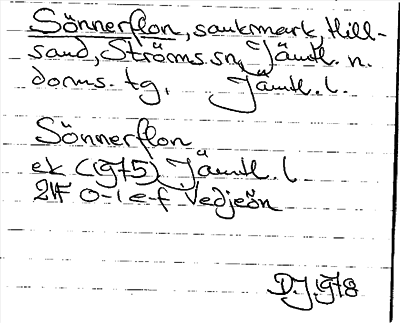 Sönnerflon, sankmark, Hill-
sand, Ströms sn, Jämtl. n.
doms. tg, Jämtl. l.
Sönnerflon
ek (1975) Jämtl. l
21F 0-1 e-f Vedjeön
DJ 1978